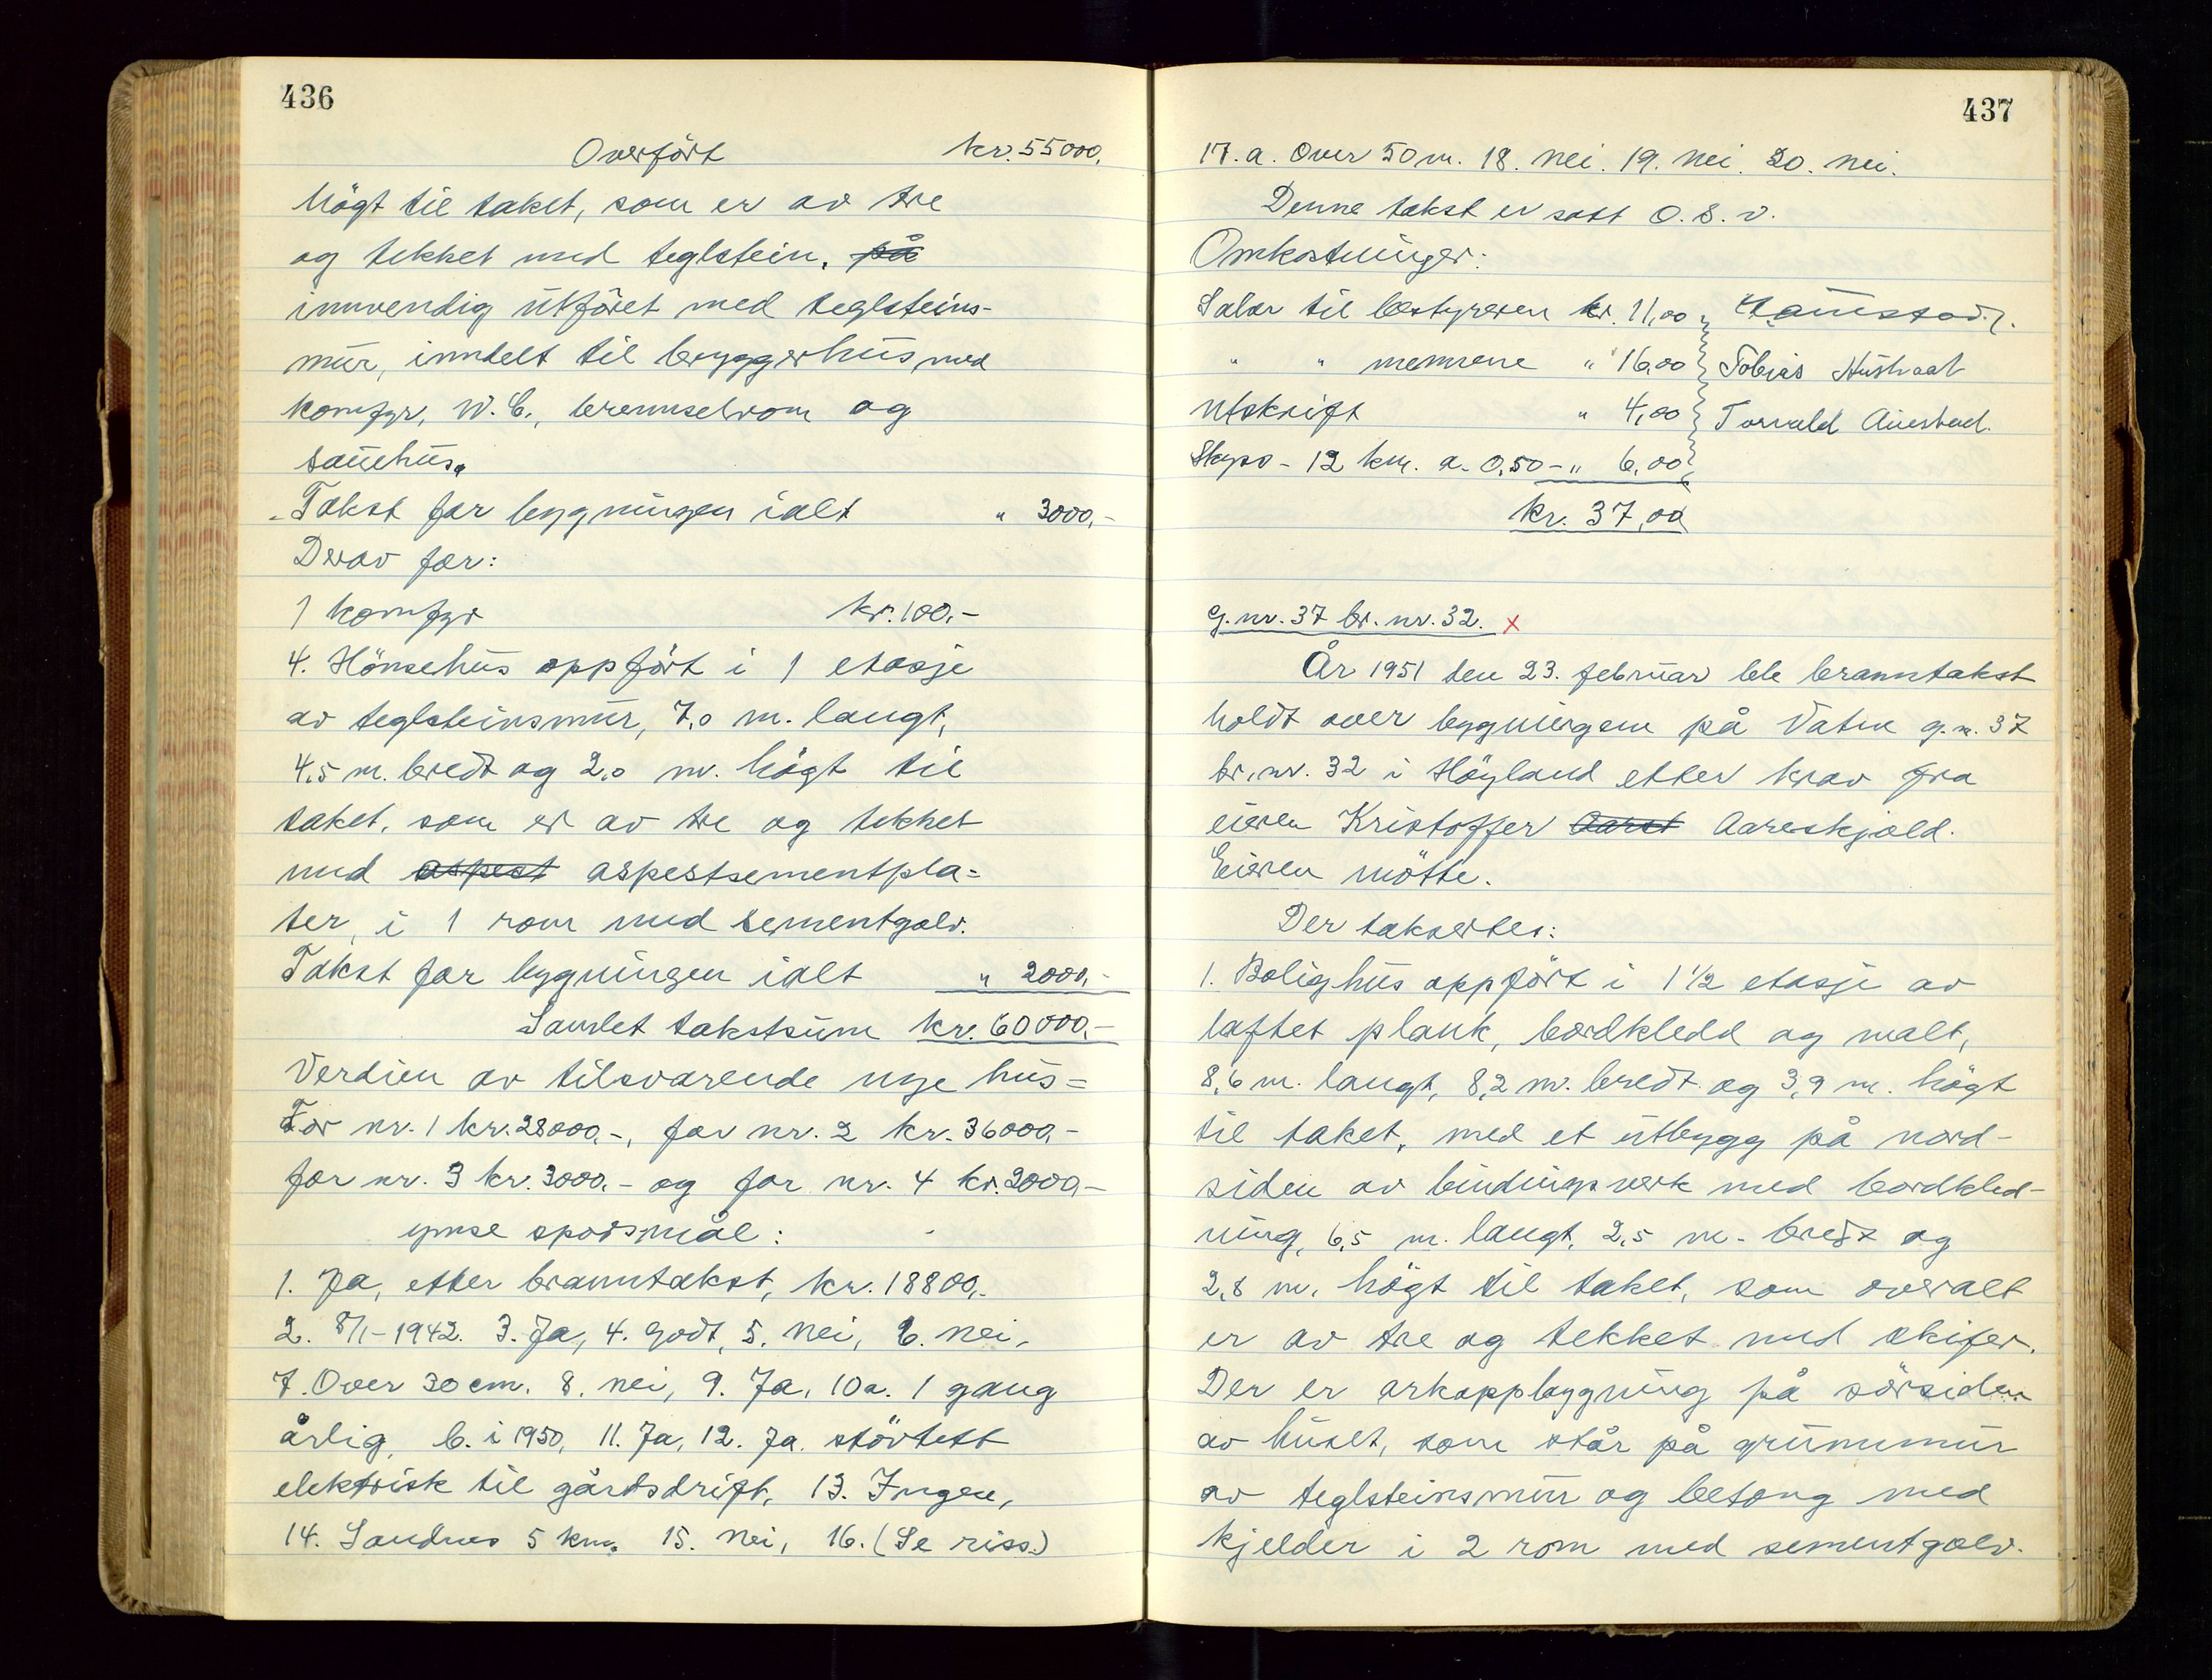 436
Overført kr. 55000,
högt til taket, som er av tre
og tekket med teglstein, på
innvendig utfôret med teglsteins-
mur, inndelt til bryggerhus med
komfyr, W.C., brennselrom og
sauehus.
Takst for bygningen ialt " 3000,-
Derav for:
1 komfyr kr. 100,-
4. Hönsehus oppfört i 1 etasje
av teglsteinsmur, 7,0 m. langt,
4,5 m. bredt og 2,0 m. högt til
taket, som er av tre og tekket
med aspest aspestsementpla=
ter, i 1 rom med sementgolv.
Takst for bygningen ialt " 2000,-
Samlet takstsum kr. 60000,-
Verdien av tilsvarende nye hus=
For nr. 1 kr. 28000,-, for nr. 2 kr. 36000,-
for nr. 3 kr. 3000,- og for nr. 4 kr. 2000,-
ymse sporsmål:
1. Ja, etter branntakst, kr. 18800,-
2. 8/1-1942. 3. Ja, 4. Godt, 5. Nei, 6. Nei,
7. Over 30 cm. 8. nei, 9. Ja, 10a. 1 gang
årlig, b. i 1950, 11. Ja, 12. Ja. störtest
elektrisk til gårdsdrift, 13. Ingen,
14. Sandnes 5 km. 15. Nei, 16. (Se riss.)
437
17. a. Over 50 m. 18. Nei. 19. Nei. 20. Nei.
Denne takst er satt O.S.v.
Omkostninger:
Salær til bestyreren kr. 11,00
" " mennene " 16,00 Tobias Hustvedt
Utskrift " 4,00 Torvald Auestad.
Skyss - 12 km. a. 0,50 - " 6,00
kr. 37,00
G. nr. 37 br. nr. 32. x
År 1951 den 23. februar ble branntakst
holdt over bygningene på Vatne g.n. 37
br. nr. 32 i Höyland etter krav fra
eieren Kristoffer Aarest Aareskjold.
Eieren mötte.
Der taksertes:
1. Bolighus oppfört i 1 1/2 etasje av
laftet plank, bordkledd og malt,
8,6 m. langt, 8,2 m. bredt og 3,9 m. högt
til taket, med et utbygg på nord-
siden av bindingsverk med bordkled-
ning, 6,5 m. langt, 2,5 m. bredt og
2,8 m. högt til taket, som overalt
er av tre og tekket med skifer.
Der er arkoppbygning på sörsiden
av huset, som står på grunnmur
av teglsteinsmur og betong med
kjelder i 2 rom med sementgolv.